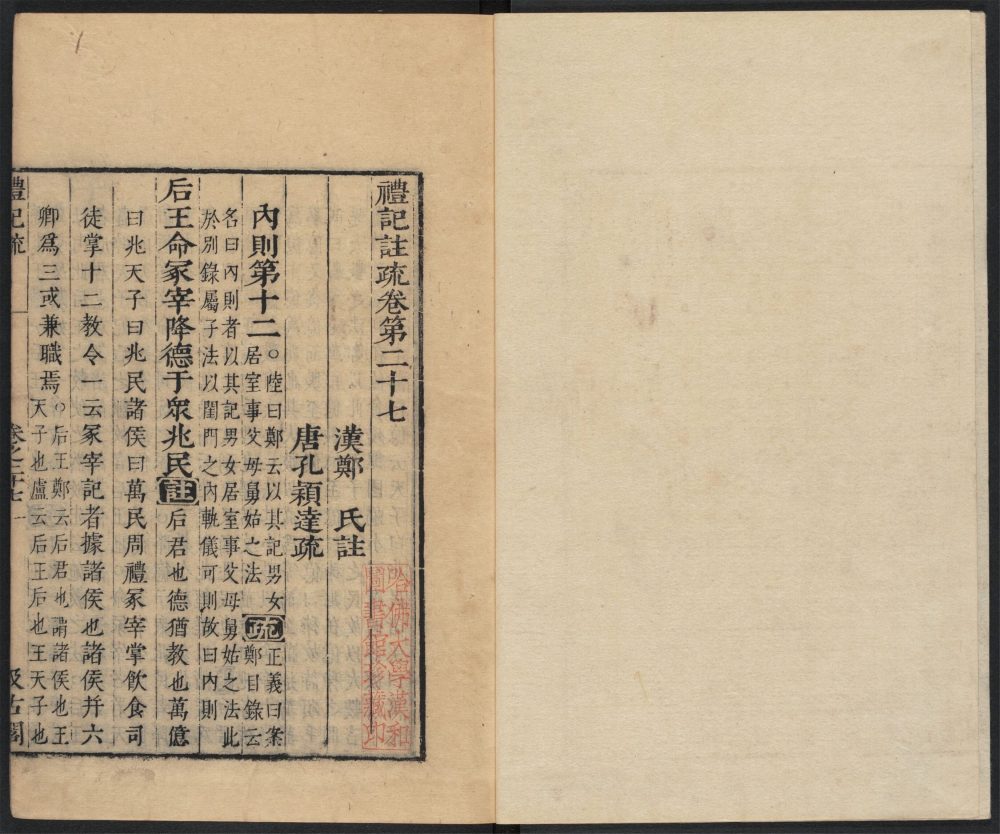 禮記註疏卷第二十七
漢鄭 氏註
唐孔穎達疏
哈佛大學漢和
圖書館珍藏印
內則第十二○陸曰鄭云以其記男女
居室事父母舅姑之法疏正義曰案
鄭目錄云
名曰內則者以其記男女居室事父母舅姑之法此
於別錄屬子法以閨門之內軌儀可則故曰內則
后王命冢宰降德于衆兆民註后君也德猶教也萬億
曰兆天子曰兆民諸侯曰萬民周禮冢宰掌飲食司
徒掌十二教令一云冢宰記者據諸侯也諸侯幷六
卿爲三或兼職焉○后王鄭云后君也謂諸侯也王
天子也盧云后王后也王天子也
禮記疏
卷之二十七
一
汲古閣